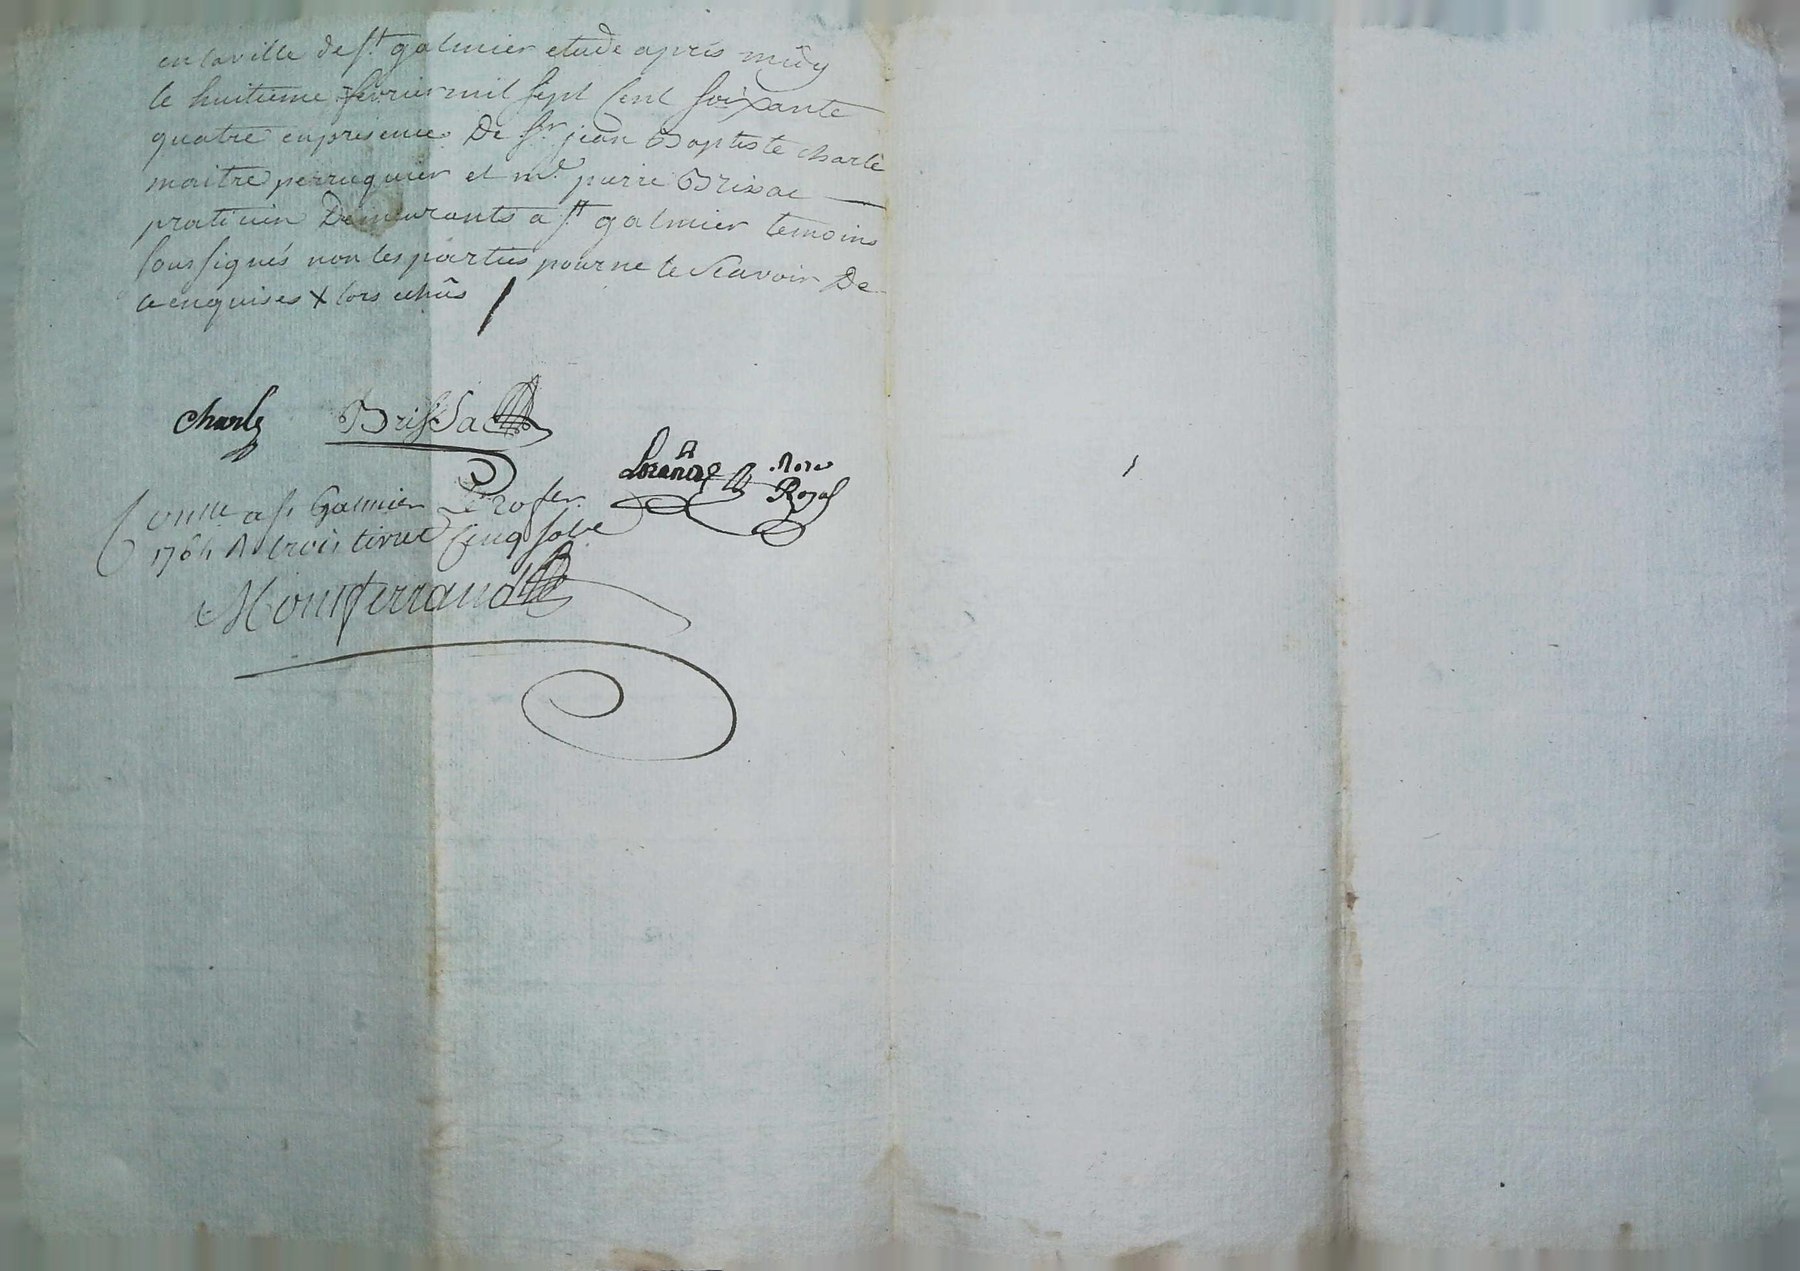 en laville de st galmier etude après midy
le huitieme fevrier mil sept cent soixante
quatre en presence De sr jean Baptiste charle
maitre perruquier et me pierre Brissac
praticien Demeurants a st galmier temoins
soussignés non les parties pour ne le scavoir De
ce enquises x lors
charle Brissac
not. Royal
Conlle a st Galmier Le 20 fer
1764 A trois livres cinq sols
Montferrand